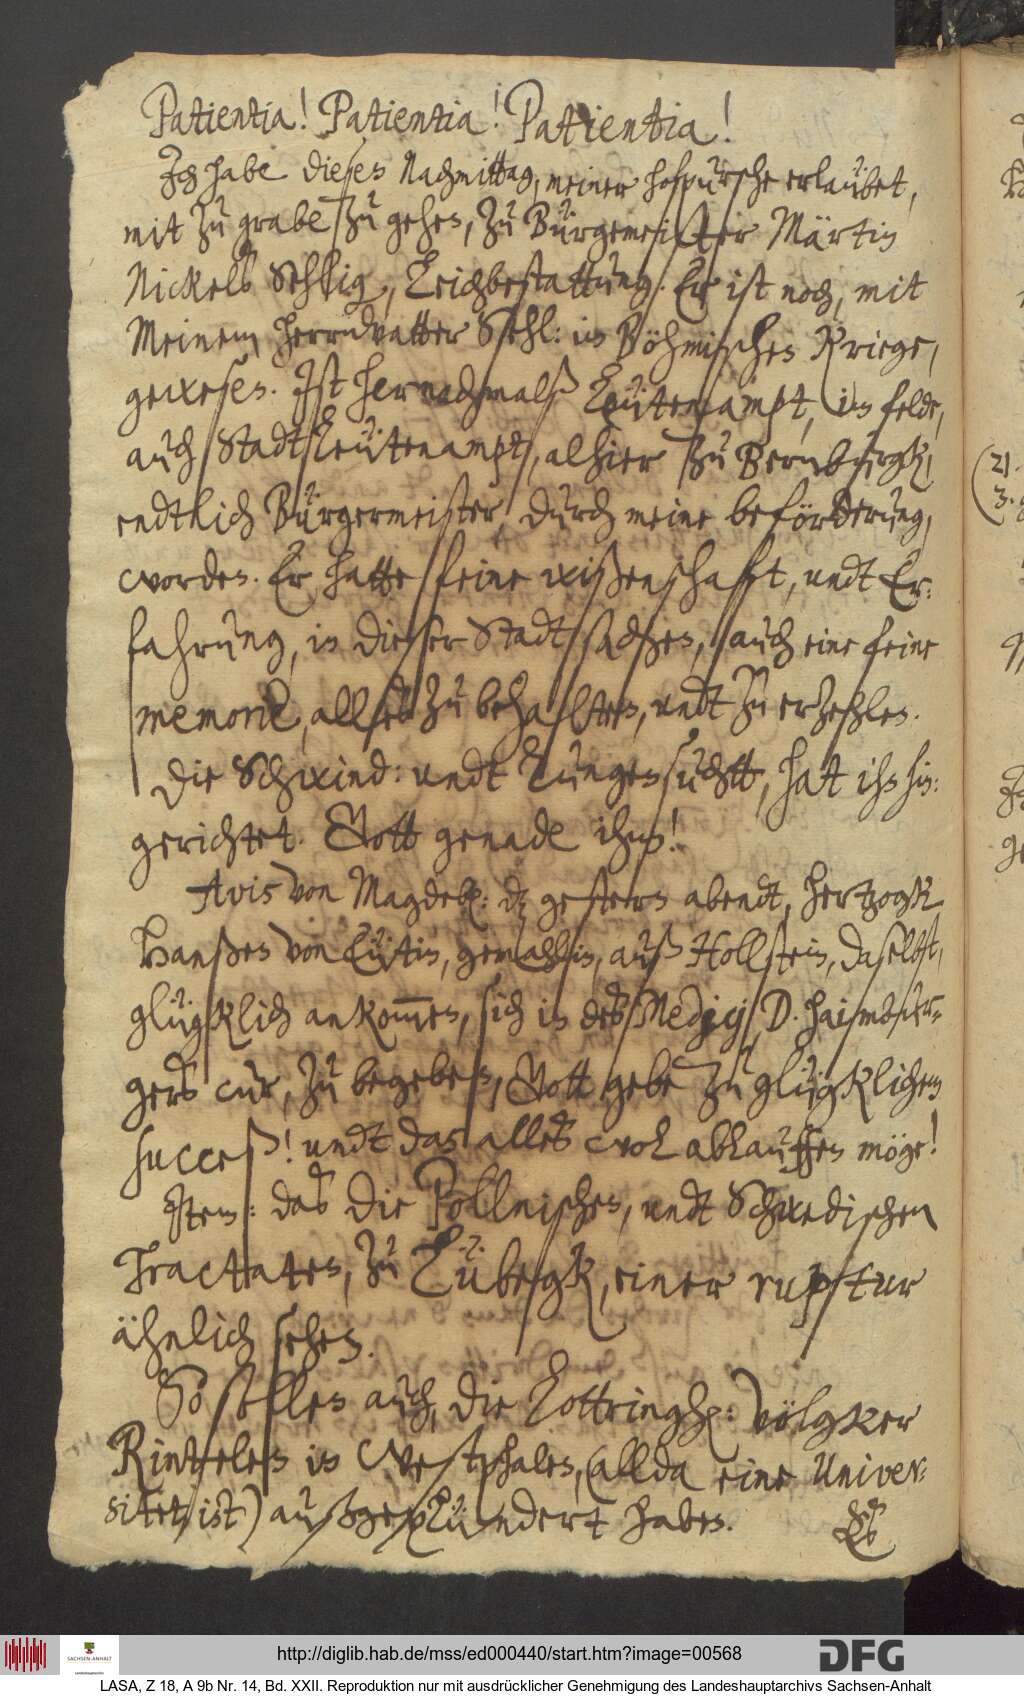 Patientia! Patientia! Patientia!
Ich habe diesen Nachmittag, meiner hofpursche erlaübet,
mit zu grabe zu gehen, zu Bürgemeister Märtin
Nickels Sehlig, Leichbestattung. Er ist noch, mit
Meinem Herrnvatter Sehl: in Böhmischen Kriege,
gewesen. Ist hernachmalß Leütenampt, im felde,
auch Stadtleütenampt, alhier zu Bernburgk,
endtlich Bürgermeister, durch meine beförderung,
worden. Er hatte feine wißenschafft, undt Er:
fahrung, in dieser Stadt sachen, auch eine feine
memorie, alles zu behalten, undt zu erzehlen.
Die Schwind: undt Lungensucht, hat ihn hin:
gerichtet. Gott genade ihm!
Avis von Magdeb: dz gestern abendt, hertzogk
Hanßen von Eütin, gemahlin, auß Hollstein, daselbst,
glügklich ankommen, sich in des Medicj D. Haimbür¬
gers cur, zu begeben, Gott gebe zu glügklichem
succeß! undt das alles wol ablauffen möge!
Item: das die Pollnischen, undt Schwedischen
Tractaten, zu Lübegk, einer ruptur
ähnlich sehen.
So sollen auch, die Lottringh: völgker
Rintelen in Westphalen, (allda eine Univer:
sitet ist) außgeplündert haben.
Es
http://diglib.hab.de/mss/ed000440/start.htm?image=00568
DFG
SACHSEN-ANHALT
LASA, Z 18, A 9b Nr. 14, Bd. XXII. Reproduktion nur mit ausdrücklicher Genehmigung des Landeshauptarchivs Sachsen-Anhalt